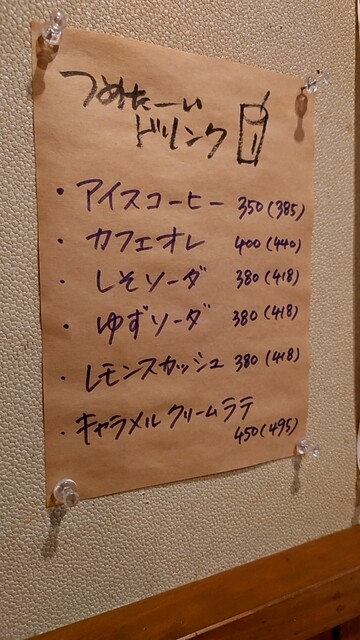 つめたーい
ドリンク
・アイスコーヒー 350(385)
・カフェオレ 400(440)
・しそソーダ 380(418)
・ゆずソーダ 380(418)
・レモンスカッシュ 380(418)
・キャラメルクリームラテ
450(495)